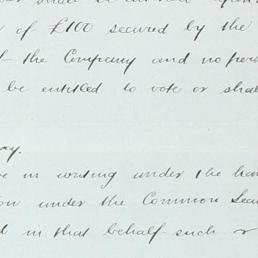 of £100 secured by the
the Company and no pers
be entitled to vote or shal
ay.
e in writing under the han
on under the Common Sea
d in that behalf such or